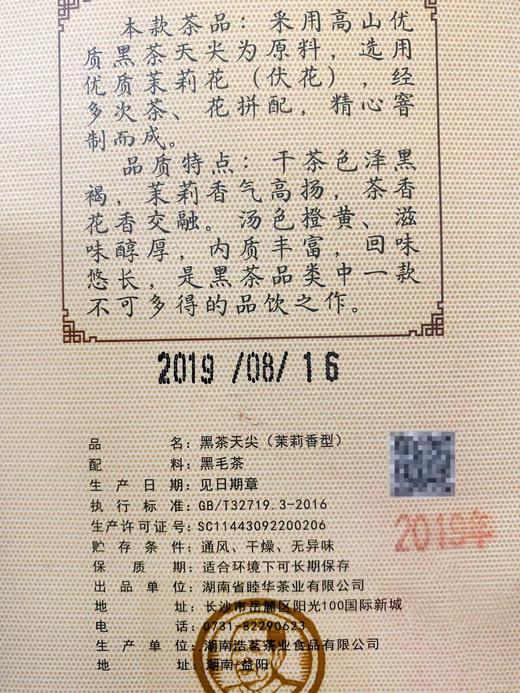 本款茶品：采用高山优
质黑茶天尖为原料，选用
优质茉莉花（伏花），经
多次茶、花拼配，精心窨
制而成。
品质特点：干茶色泽黑
褐，茉莉香气高扬，茶香
花香交融。汤色橙黄、滋
味醇厚，内质丰富，回味
悠长，是黑茶品类中一款
不可多得的品饮之作。
2019 /08/ 16
品名：黑茶天尖（茉莉香型）
配料：黑毛茶
生产日期：见日期章
执行标准：GB/T32719.3-2016
生产许可证号：SC11443092200206
贮存条件：通风、干燥、无异味
保质期：适合环境下可长期保存
出品：湖南省睦华茶业有限公司
地址：长沙市岳麓区阳光100国际新城
电话：0731-82290623
生产单位：湖南浩茗茶业食品有限公司
地址：湖南·益阳
2019年